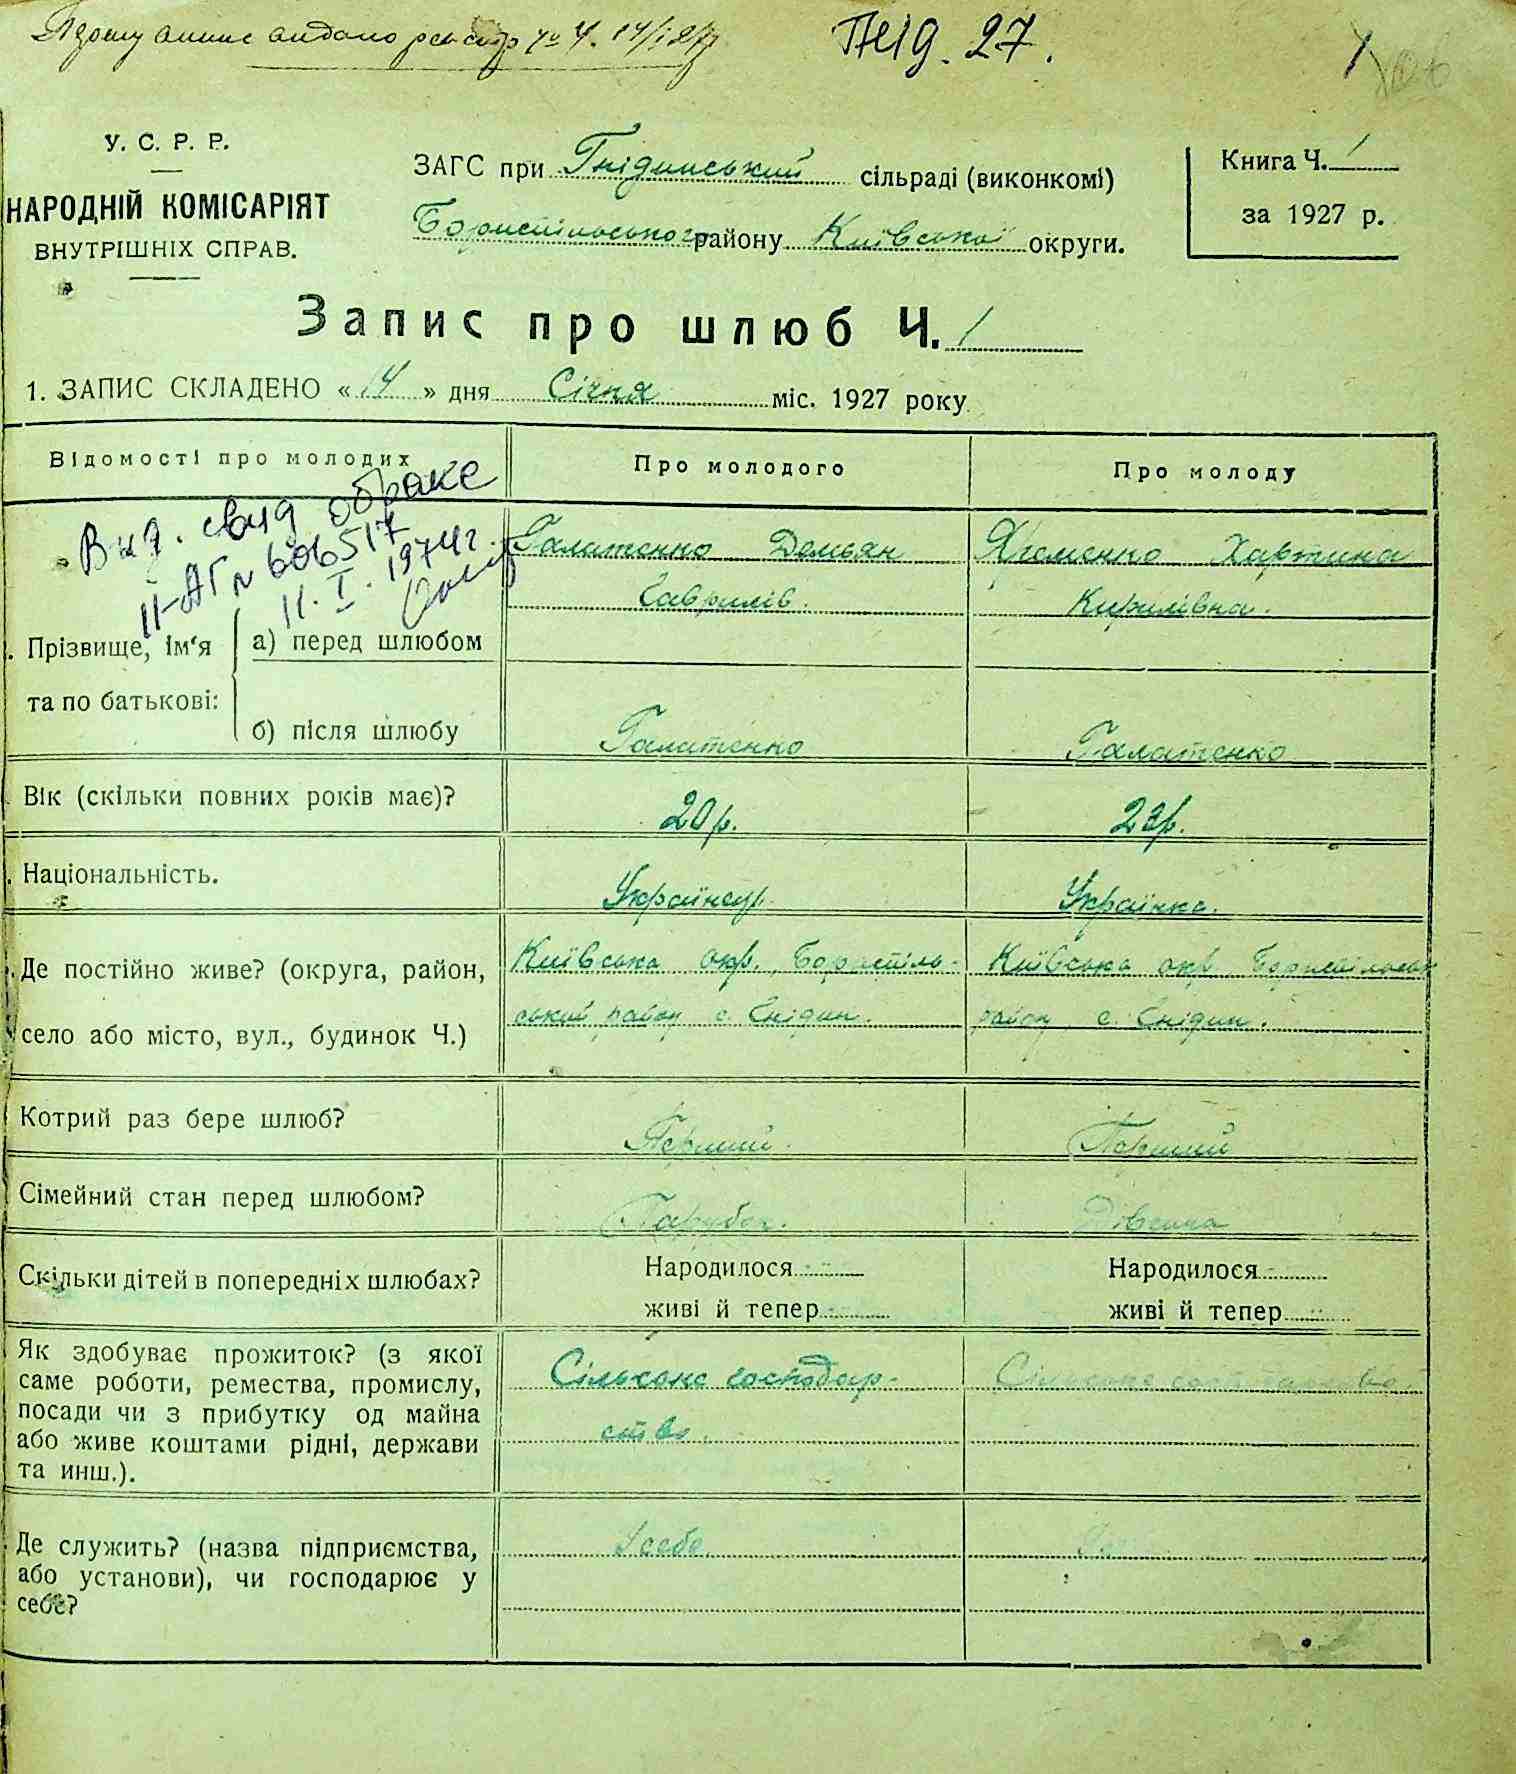 Першу випис видано реєстр № 4. 14/I 27 р
Гнід. 27.
1
У. С. Р. Р.
НАРОДНІЙ КОМІСАРІЯТ
ВНУТРІШНІХ СПРАВ.
ЗАГС при Гнідинський сільраді (виконкомі)
Бориспільського району Київської округи.
Книга Ч. 1
за 1927 р.
Запис про шлюб Ч. 1
1. ЗАПИС СКЛАДЕНО « 14 » дня Січня міс. 1927 року
Відомості про молодих
Про молодого
Про молоду
Выд. свид о браке
II-АГ № 606517
11. I. 1974 г.
Прізвище, ім'я
та по батькові:
а) перед шлюбом
Галатенко Демьян
Гаврилів.
Яременко Хартина
Кирилівна.
б) після шлюбу
Галатенко
Галатенко
Вік (скільки повних років має)?
20 р.
23 р.
Національність.
Українець.
Українка.
Де постійно живе? (округа, район,
село або місто, вул., будинок Ч.)
Київська окр., Бориспіль-
ський район с. Гнідин.
Київська окр. Бориспільськ
район, с. Гнідин.
Котрий раз бере шлюб?
Перший.
Перший
Сімейний стан перед шлюбом?
Парубок.
Дівчина
Скільки дітей в попередніх шлюбах?
Народилося
живі й тепер
Народилося
живі й тепер
Як здобуває прожиток? (з якої
саме роботи, ремества, промислу,
посади чи з прибутку од майна
або живе коштами рідні, держави
та инш.).
Сільське господар-
ство.
Сільське господарство
Де служить? (назва підприємства,
або установи), чи господарює у
себе?
У себе